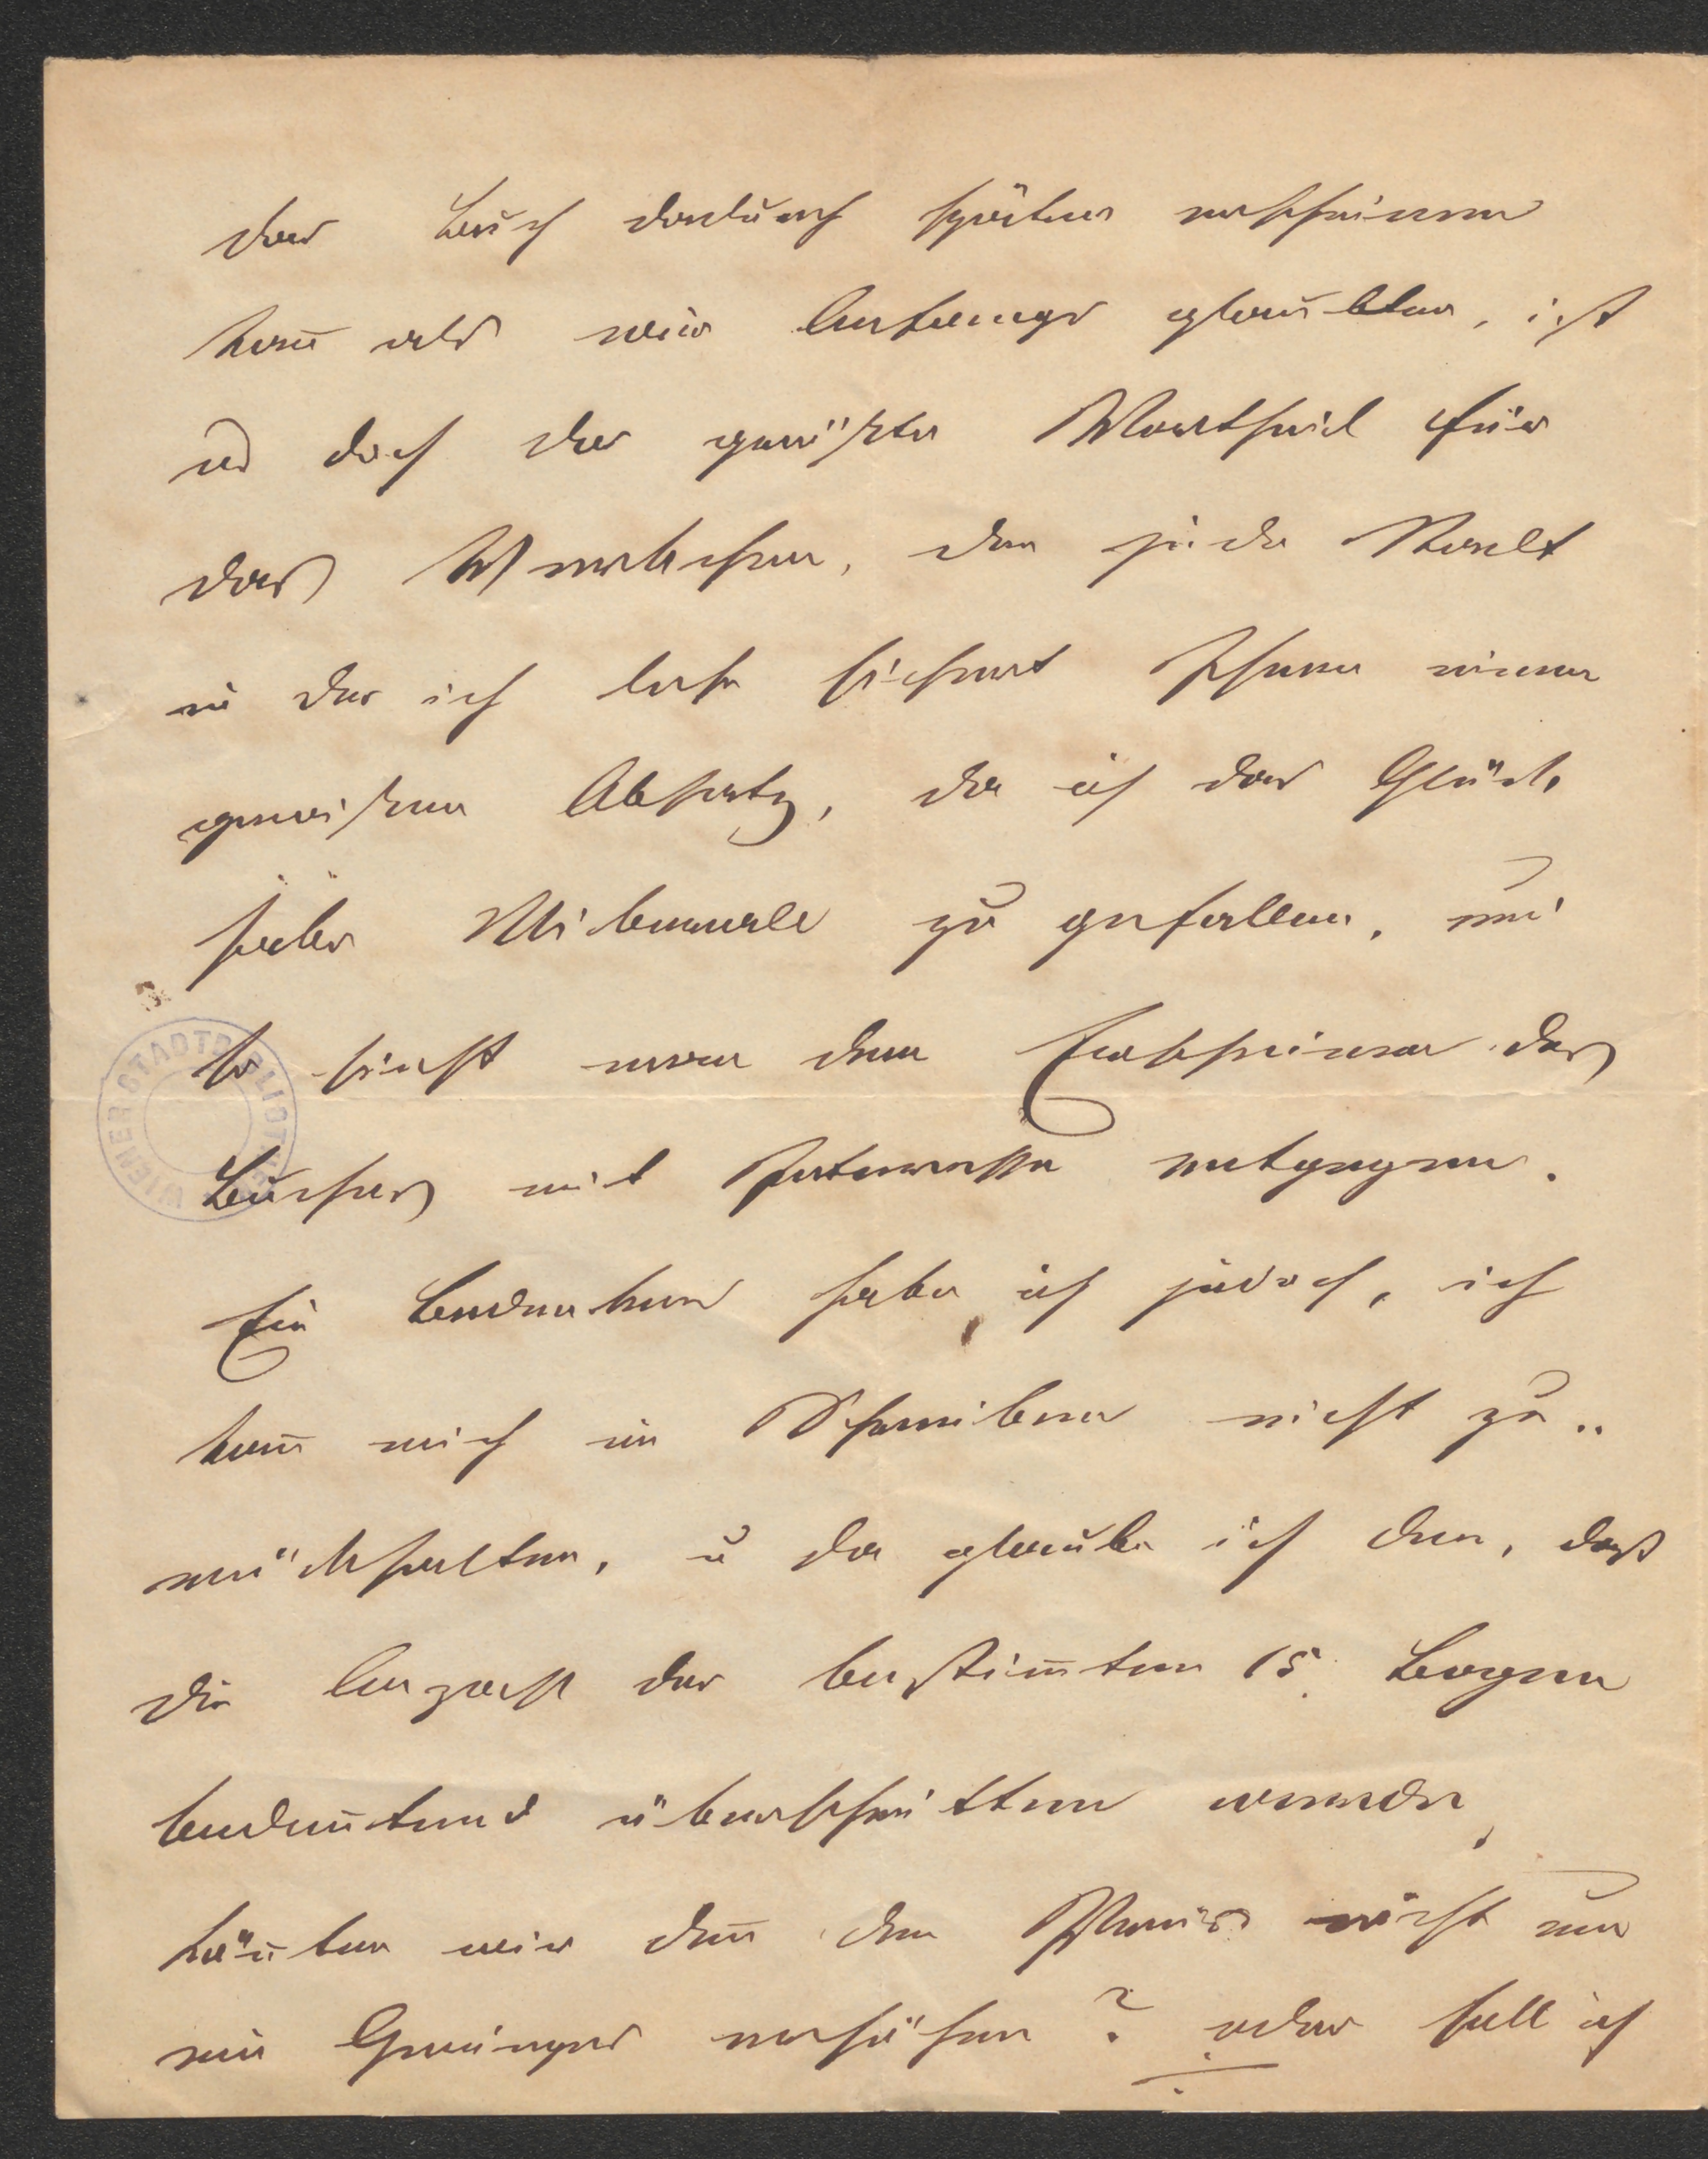 das Buch dadurch später erscheinen
kan̄ als wir Anfangs glaubten, ist
es doch der größte Vortheil für
das Werkchen, den jede Stadt
in der ich lese sichert Ihnen einen
gewißen Absatz, da ich das Glück
habe überall zu gefallen, und
so sieht man dem Erscheinen des
Buches mit Interesse entgegen.
Ein Bedenken habe ich jedoch, ich
kan̄ mich im Schreiben nicht zu..
rückhalten, u da glaube ich den, daß
die Anzahl der bestim̄ten 15. Bogen
bedeutend überschritten werde,
kön̄ten wir den̄ den Preis nicht um
ein Geringes erhöhen? oder soll ich
WIENER STADTBIBLIOTHEK